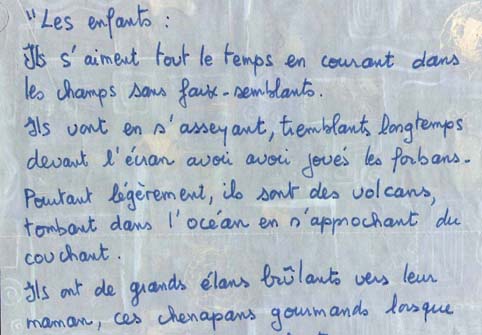 "Les enfants :
Ils s'aiment tout le temps en courant dans
les champs sans faux-semblants.
Ils vont en s'asseyant, tremblants longtemps
devant l'écran avoir avoir joués les forbans.
Pourtant légèrement, ils sont des volcans,
tombant dans l'océan en s'approchant du
couchant.
Ils ont de grands élans brûlants vers leur
maman, ces chenapans gourmands lorsque